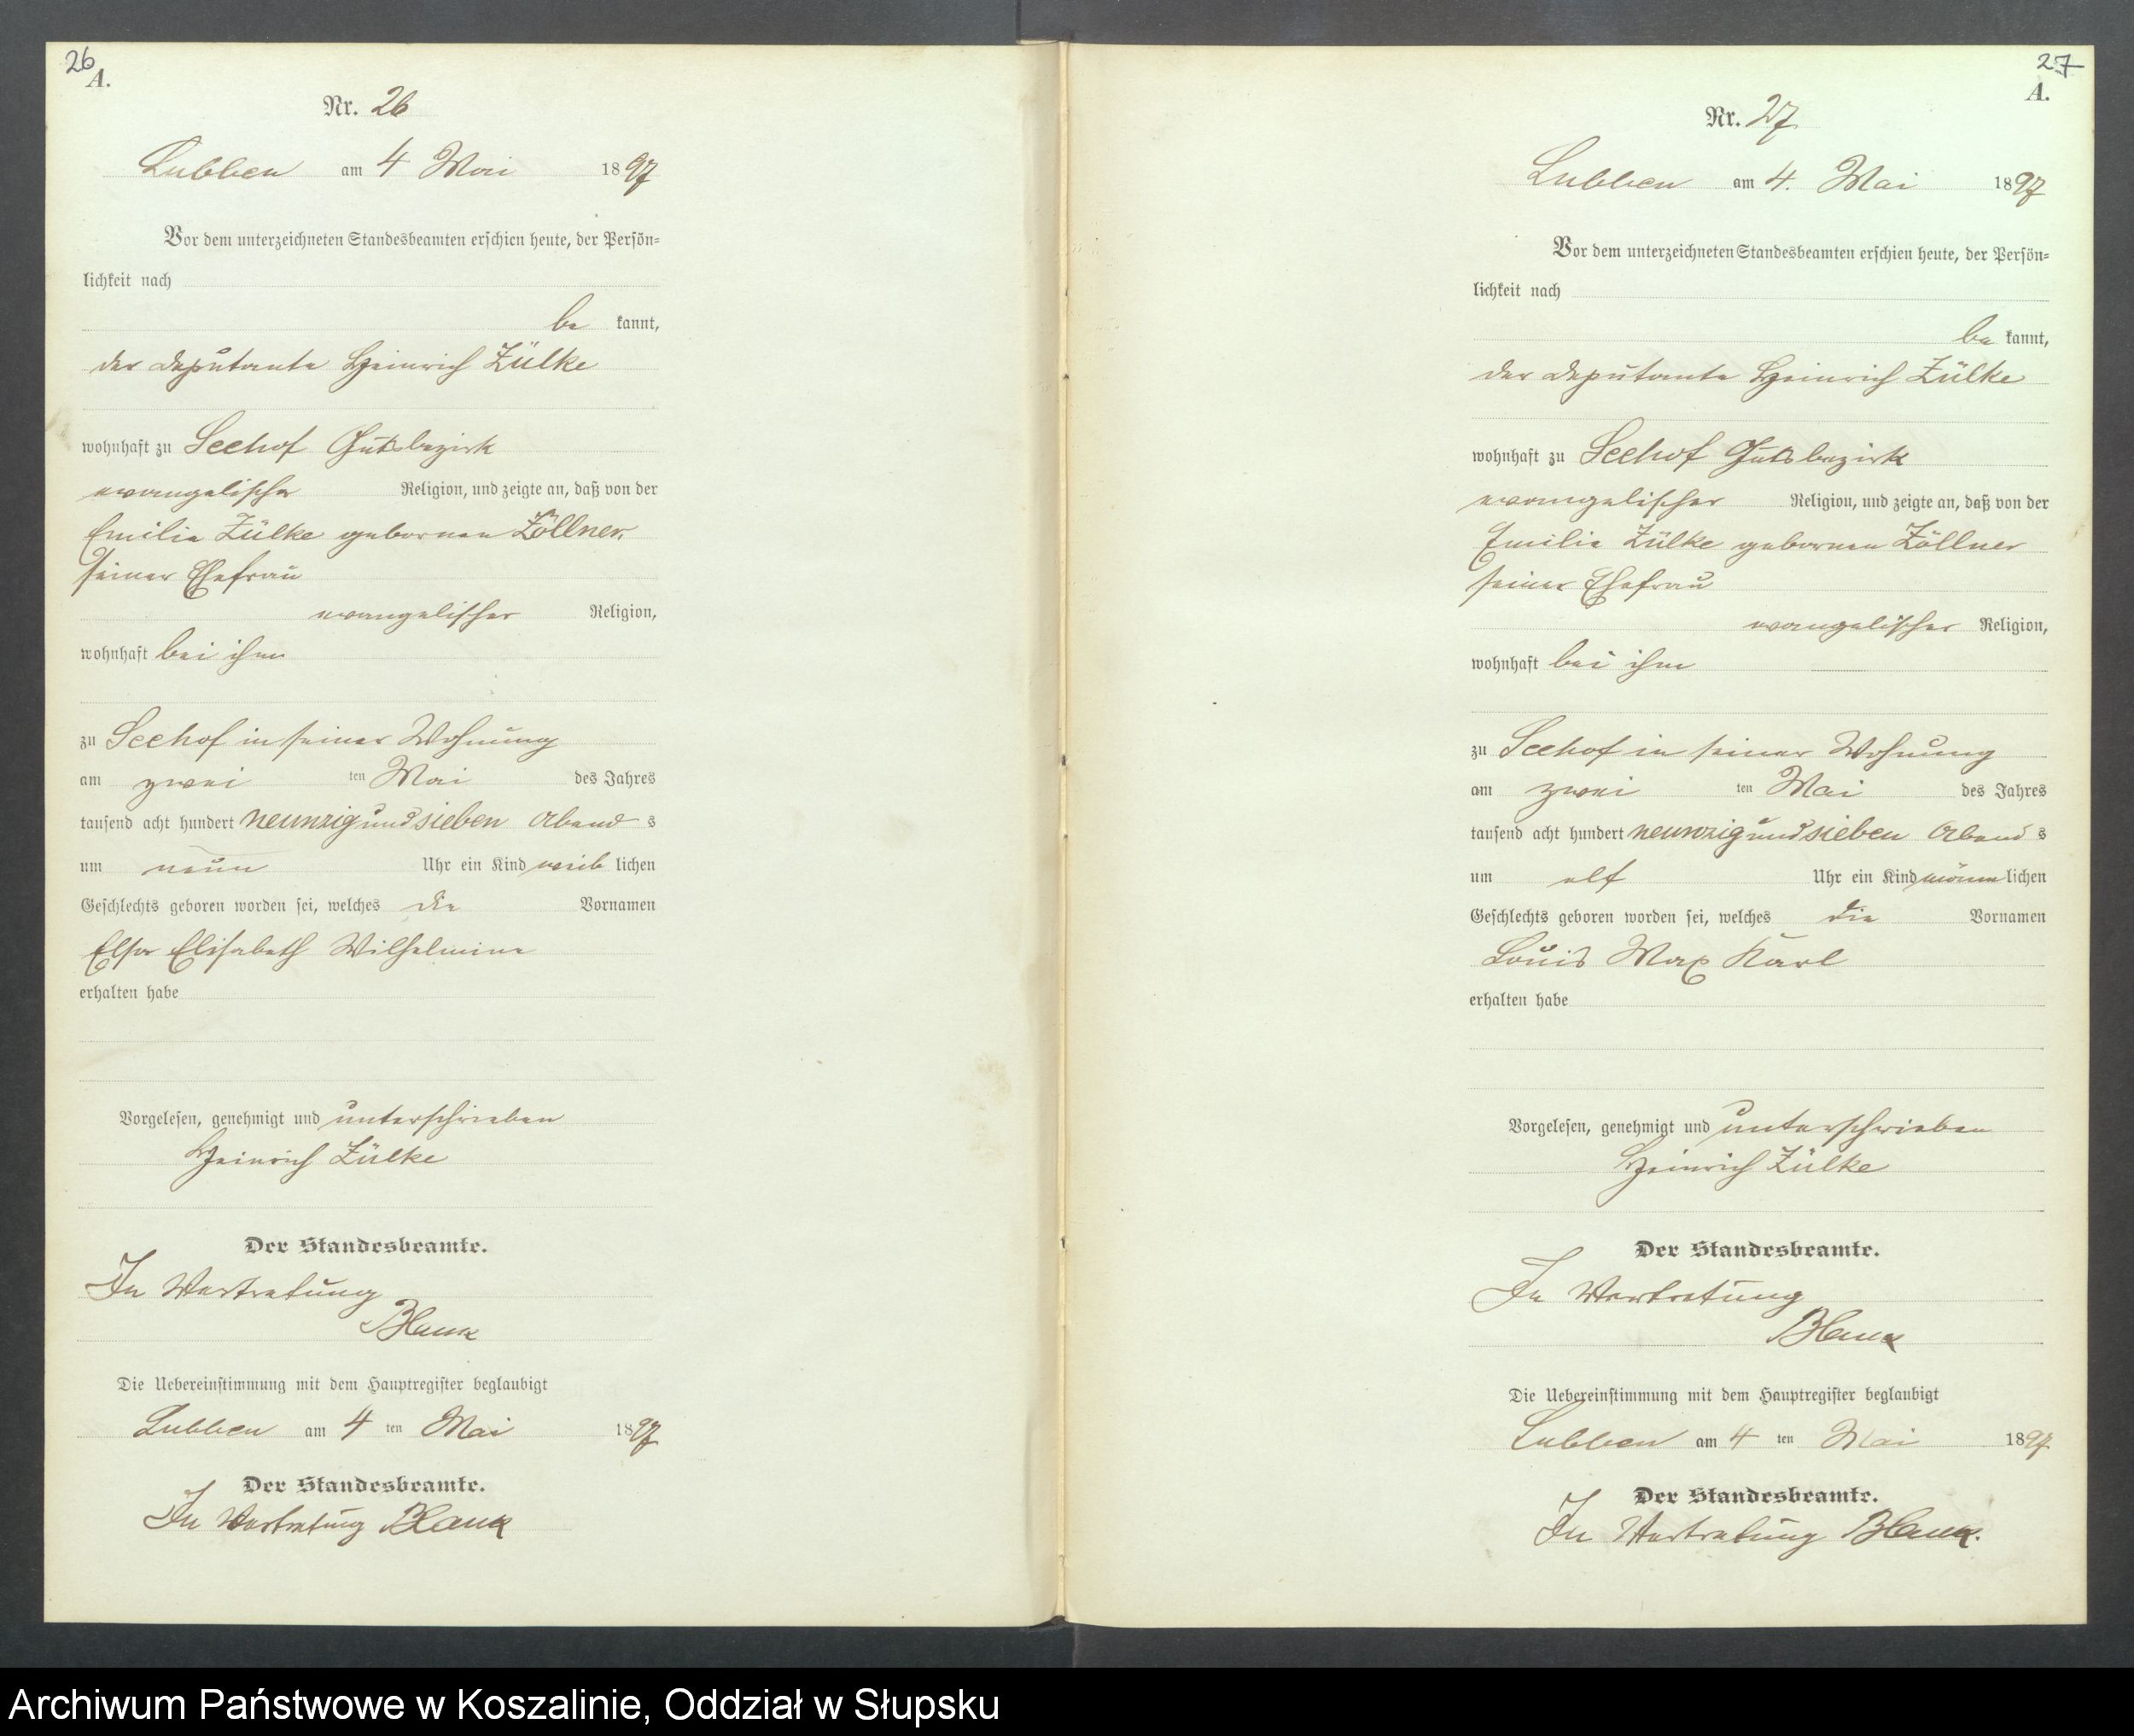 26
A.
Nr. 26
Lubben am 4 Mai 1897
Vor dem unterzeichneten Standesbeamten erschien heute, der Persön=
lichkeit nach
be kannt,
der Deputante Heinrich Zülke
wohnhaft zu Seehof Gutsbezirk
evangelischer Religion, und zeigte an, daß von der
Emilie Zülke gebornen Zöllner,
seiner Ehefrau
evangelischer Religion,
wohnhaft bei ihm
zu Seehof in seiner Wohnung
am zwei ten Mai des Jahres
tausend acht hundert neunzig und sieben Abend s
um neun Uhr ein Kind weib lichen
Geschlechts geboren worden sei, welches die Vornamen
Elsa Elisabeth Wilhelmine
erhalten habe
Vorgelesen, genehmigt und unterschrieben
Heinrich Zülke
Der Standesbeamte.
In Vertretung
Blank
Die Uebereinstimmung mit dem Hauptregister beglaubigt
Lubben am 4 ten Mai 1897
Der Standesbeamte.
In Vertretung Blank
27
A.
Nr. 27
Lubben am 4. Mai 1897
Vor dem unterzeichneten Standesbeamten erschien heute, der Persön=
lichkeit nach
be kannt,
der Deputante Heinrich Zülke
wohnhaft zu Seehof Gutsbezirk
evangelischer Religion, und zeigte an, daß von der
Emilie Zülke gebornen Zöllner
seiner Ehefrau
evangelischer Religion,
wohnhaft bei ihm
zu Seehof in seiner Wohnung
am zwei ten Mai des Jahres
tausend acht hundert neunzig und sieben Abend s
um elf Uhr ein Kind männ lichen
Geschlechts geboren worden sei, welches die Vornamen
Louis Max Karl
erhalten habe
Vorgelesen, genehmigt und unterschrieben
Heinrich Zülke
Der Standesbeamte.
In Vertretung
Blank
Die Uebereinstimmung mit dem Hauptregister beglaubigt
Lubben am 4 ten Mai 1897
Der Standesbeamte.
In Vertretung Blank.
Archiwum Państwowe w Koszalinie, Oddział w Słupsku